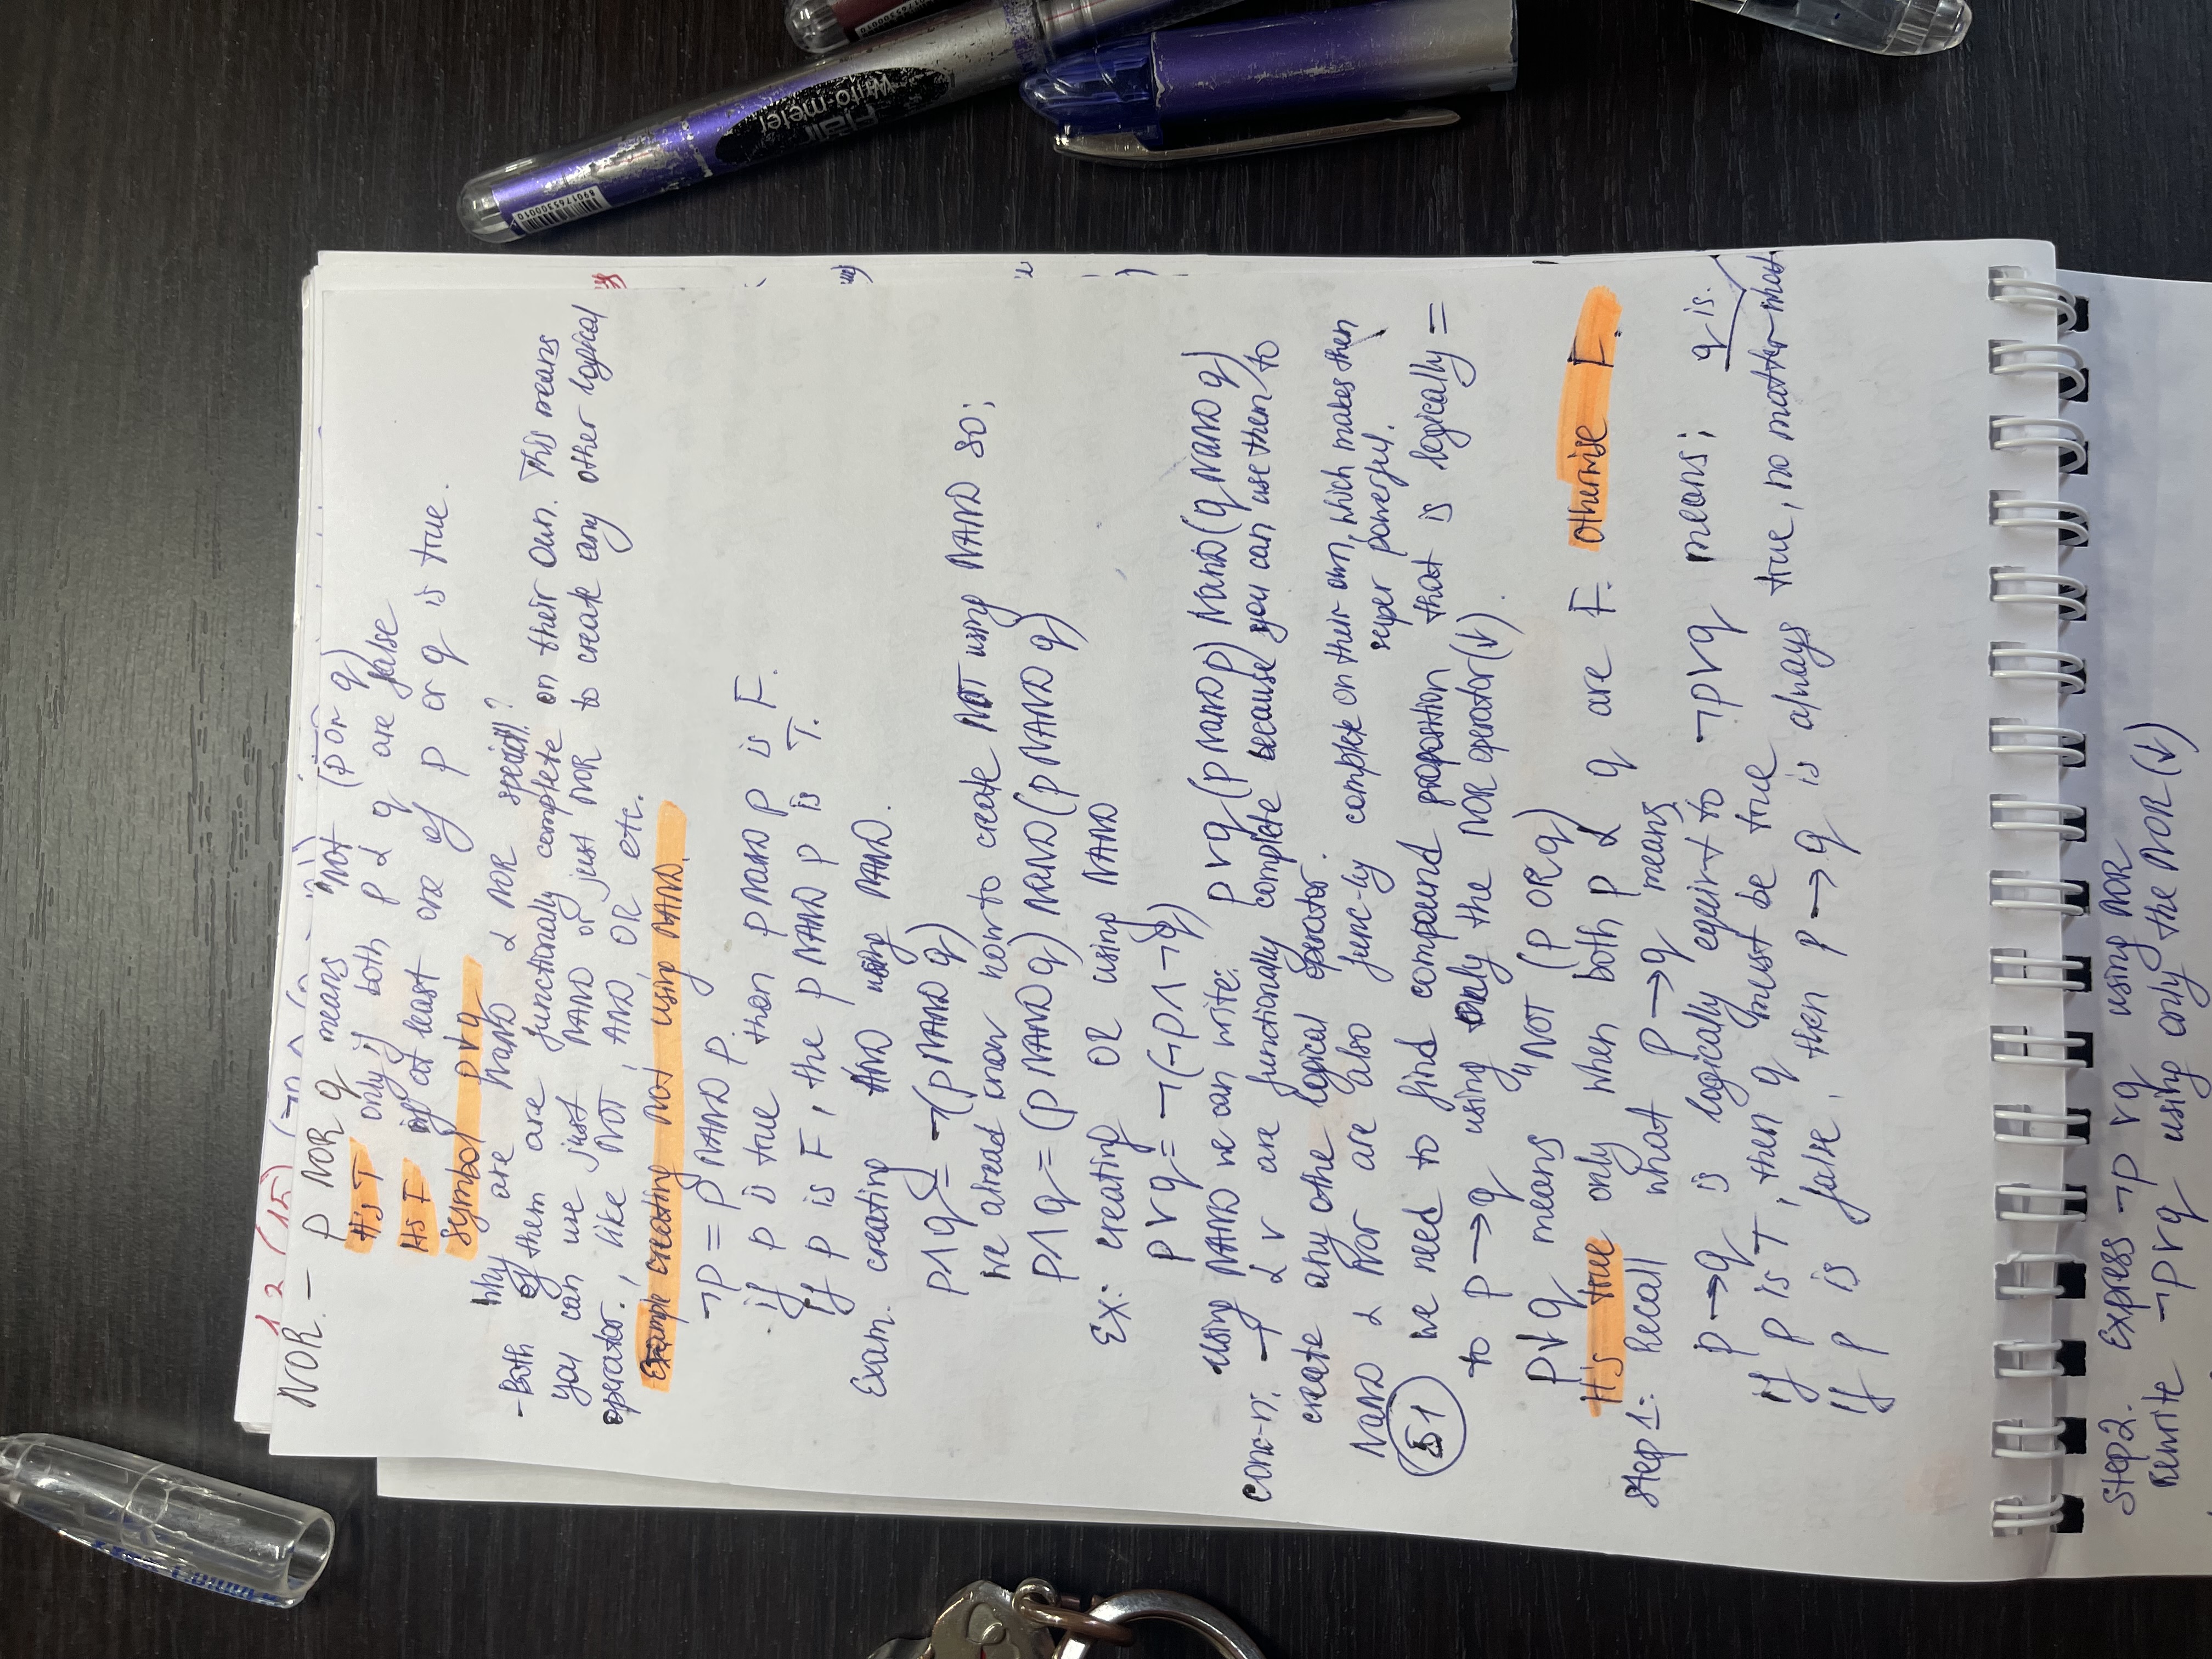 1.2 (15)
NOR. - p NOR q means "Not (p or q)
It's T only if both p & q are false
Its F if at least one of p or q is true.
Symbol p↓q
Why are NAND & NOR special?
- Both of them are functionally complete on their own. This means
you can use just NAND or just NOR to create any other logical
operator., like NOT, AND, OR etc.
Example creating Not using NAND.
¬p = p NAND p.
if p is true then p NAND p is F.
If p is F, the p NAND p is T.
Exam. creating AND using NAND.
p∧q = ¬(p NAND q)
we alread know how to create NOT using NAND so;
p∧q = (p NAND q) NAND (p NAND q)
Ex: creating OR using NAND
p∨q = ¬(¬p∧¬q)
Using NAND we can write: p∨q (p NAND p) NAND (q NAND q)
conc-n: ¬ & ∨ are functionally complete because you can use them to
create any othe logical operator.
NAND & Nor are also func-ly complete on their own, which makes then
super powerful.
51 we need to find compound proposition that is logically =
to p → q using only the NOR operator (↓).
p↓q means "NOT (p OR q)
It's true only when both p & q are F. otherwise F.
Step 1: Recall what p → q means
p → q is logically equiv-t to ¬p∨q means; q is.
if p is T, then q must be true
If p is false, then p → q is always true, no matter what
Step 2. Express ¬p ∨ q using NOR
Rewrite ¬p∨q using only the NOR (↓)
Hello
micro-meter